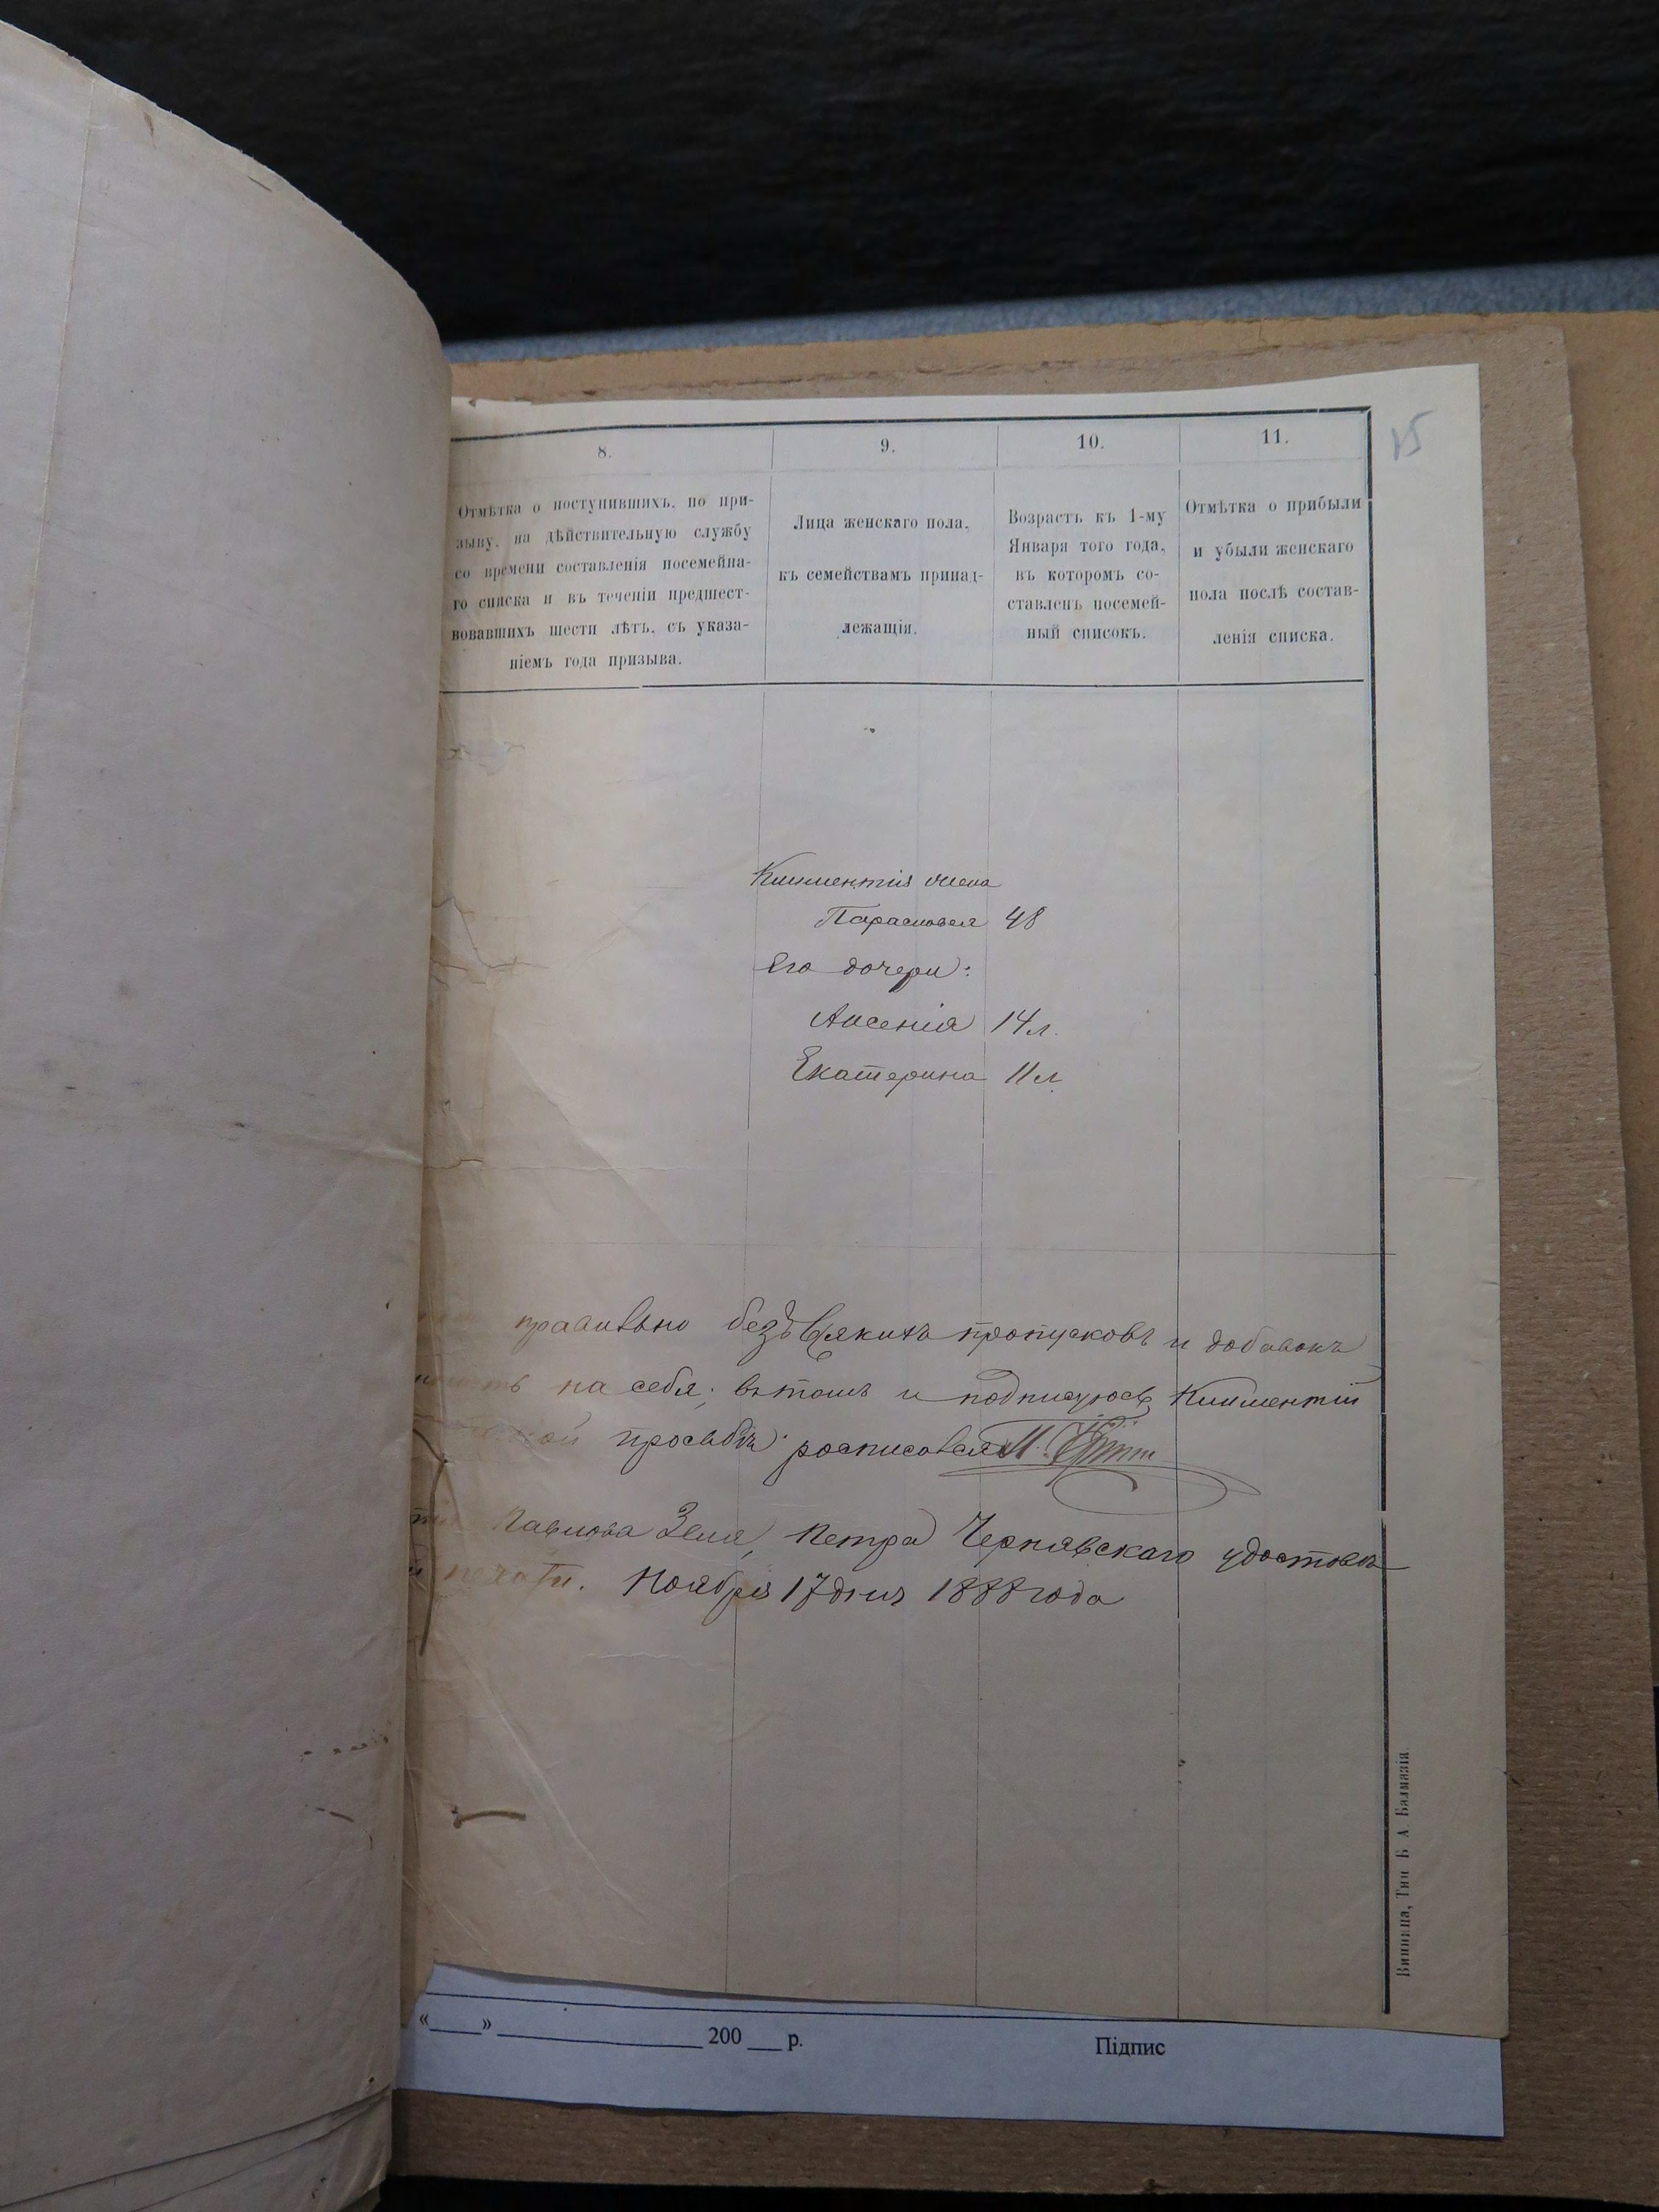 8.
9.
10.
11.
Отмѣтка о поступившихъ, по при-
зыву, на дѣйствительную службу
со времени составленія посемейна-
го списка и въ теченіи предшест-
вовавшихъ шести лѣтъ, съ указа-
ніемъ года призыва.
Лица женскаго пола,
къ семействамъ принад-
лежащія.
Возрастъ къ 1-му
Января того года,
въ которомъ со-
ставленъ посемей-
ный списокъ.
Отмѣтка о прибыли
и убыли женскаго
пола послѣ состав-
ленія списка.
Климентія жена
Парасковея 48
Его дочери:
Аксенія 14 л.
Екатерина 11 л.
правильно безъ всякихъ пропусковъ и добавокъ
на себя; въ томъ и подписуюсь Климентій
просьбѣ росписовался
Павлова Петра Чернявскаго удостовѣ
печати. Ноября 17 дня 1888 года
Винница, Тип Б А Балмазія.
«____» ____ 200 ___ р.
Підпис